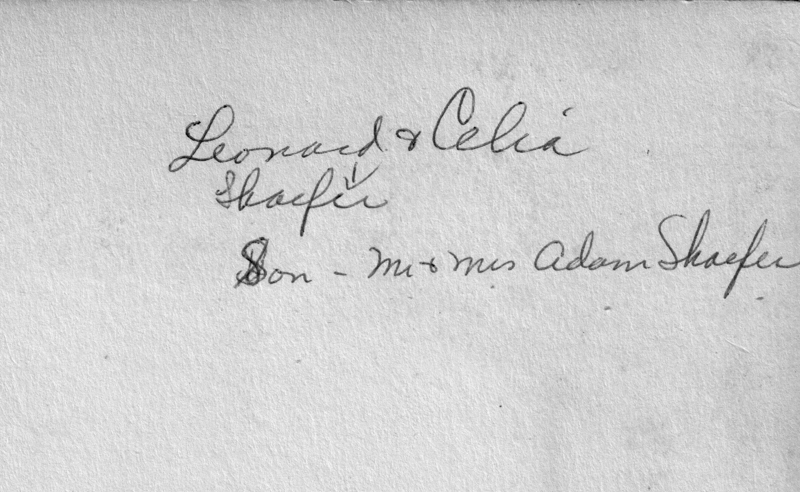 Leonard & Celia
Shaefer
Son - Mr & Mrs Adam Shaefer